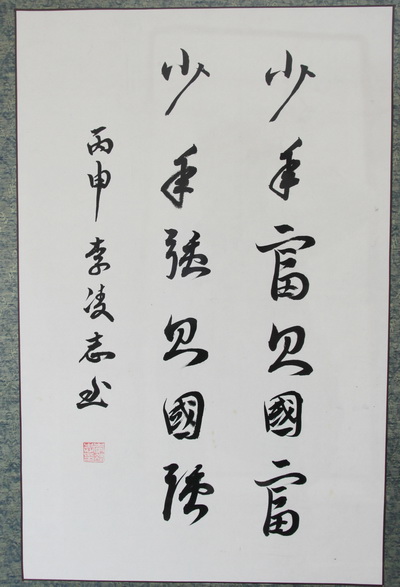 少年富則國富
少年強則國強
丙申李凌志书